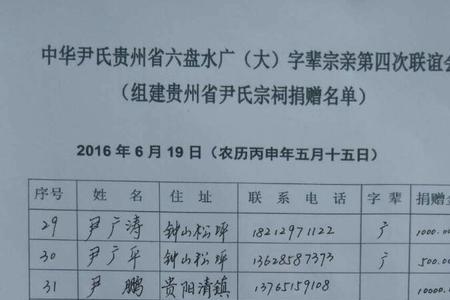 中华尹氏贵州省六盘水广（大）字辈宗亲第四次联谊会
（组建贵州省尹氏宗祠捐赠名单）
2016 年 6 月 19 日（农历丙申年五月十五日）
序号 姓 名 住 址 联 系 电 话 字 辈 捐赠金
29 尹广涛 钟山松坪 18212971122 广 1000.00
30 尹广平 钟山松坪 13628587373 广 500.00
31 尹 鹏 贵阳清镇 13765159108 10000.